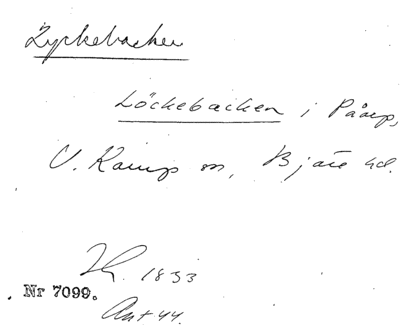 Lyckebacken
Löckebacken i Påarp,
V. Karup sn, Bjäre hd.
1833
Nr 7099.
Ant 44.